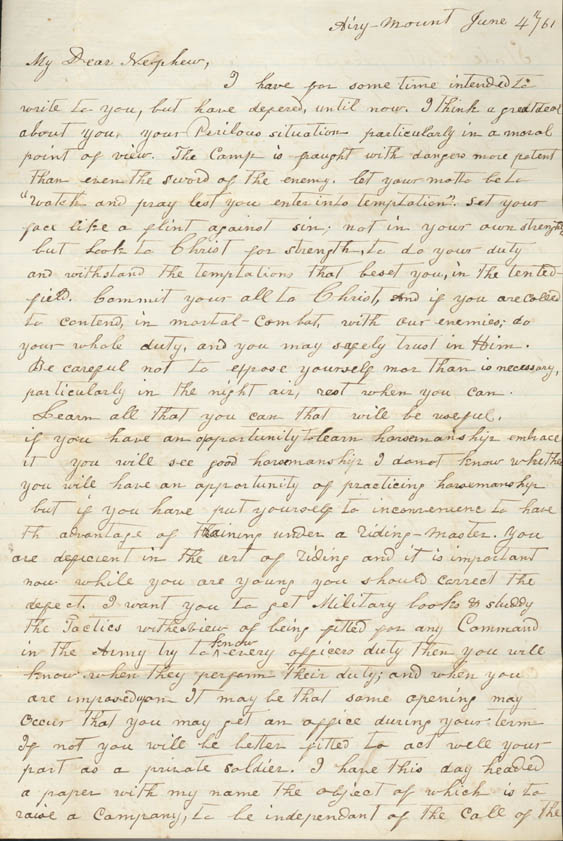 Airy-Mount June 4th/61
My Dear Nephew,
I have for some time intended to
write to you, but have defered, until now. I think a great deal
about you, your Perilous situation particularly in a moral
point of view. The Camp is fraught with dangers more potent
than even the sword of the enemy. let your motto be to
"watch and pray lest you enter into temptation". Set your
face like a flint against sin; not in your own strength
but Look to Christ for strength, to do your duty
and withstand the temptations that beset you, in the tented-
field. Commit your all to Christ, and if you are called
to contend, in mortal-Combat, with our enemies; do
your whole duty, and you may safely trust in Him.
Be careful not to expose yourself mor than is necessary,
particularly in the night air, rest when you can.
Learn all that you can that will be useful.
if you have an opportunity to learn horsemanship embrace
it you will see good horsemanship I donot know whether
you will have an opportunity of practicing horsemanship
but if you have put yourself to inconvenience to have
th advantage of training under a riding-master. You
are deficient in the art of riding and it is important
now while you are young you should correct the
defect. I want you to get Military books & studdy
the Tactics with a view of being fitted for any Command
in the Army try to know every officers duty then you will
know when they perform their duty; and when you
are imposed upon It may be that some opening may
occur that you may get an office during your term
If not you will be better fitted to act well your
part as a private soldier. I have this day headed
a paper with my name the object of which is to
raise a Company, to be independant of the call of the